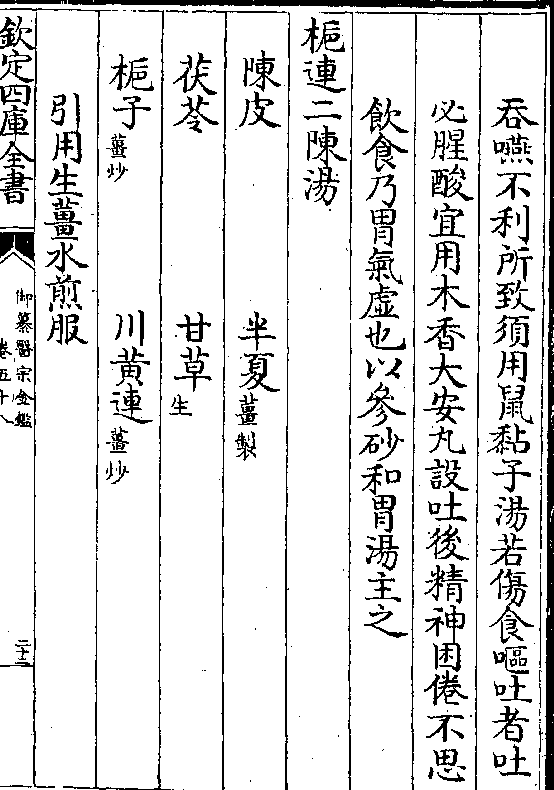 吞嚥不利所致須用鼠黏子湯若傷食嘔吐者吐
必腥酸宜用木香大安丸設吐後精神困倦不思
飲食乃胃氣虛也以參砂和胃湯主之
梔連二陳湯
陳皮 半夏薑製
茯苓 甘草生
梔子薑炒 川黃連薑炒
引用生薑水煎服
欽定四庫全書
御纂醫宗金鑑
卷五十八
二十二